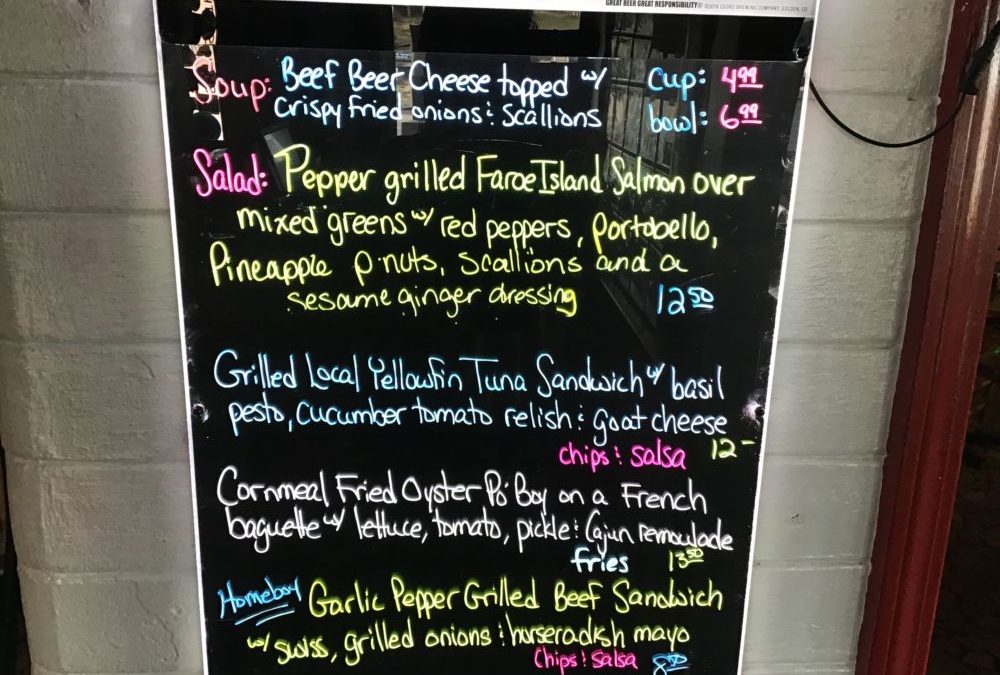 GREAT BEER GREAT RESPONSIBILITY® ©2016 COORS BREWING COMPANY, GOLDEN, CO
Soup: Beef Beer Cheese topped w/ cup: 4.99
crispy fried onions & scallions bowl: 6.99
Salad: Pepper grilled Faroe Island Salmon over
mixed greens w/ red peppers, portobello,
Pineapple p.nuts, scallions and a
sesame ginger dressing 12.50
Grilled Local Yellowfin Tuna Sandwich w/ basil
pesto, cucumber tomato relish & goat cheese
chips & salsa 12-
Cornmeal Fried Oyster Po' Boy on a French
baguette w/ lettuce, tomato, pickle & Cajun remoulade
fries 13.50
Homeboy Garlic Pepper Grilled Beef Sandwich
w/ swiss, grilled onions & horseradish mayo
chips & salsa 8.50